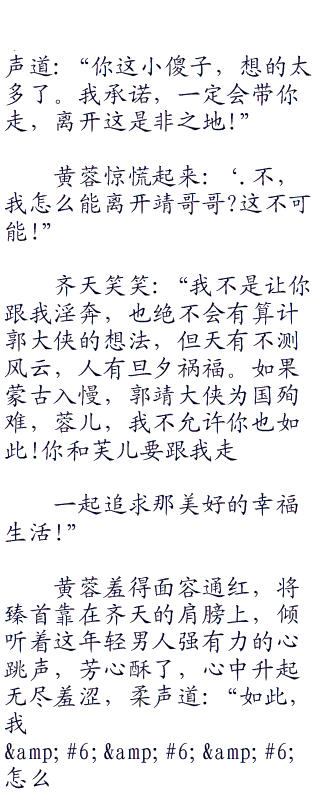 声道:“你这小傻子，想的太
多了。我承诺，一定会带你
走，离开这是非之地!”
黄蓉惊慌起来:‘.不，
我怎么能离开靖哥哥?这不可
能!”
齐天笑笑:“我不是让你
跟我淫奔，也绝不会有算计
郭大侠的想法，但天有不测
风云，人有旦夕祸福。如果
蒙古入慢，郭靖大侠为国殉
难，蓉儿，我不允许你也如
此!你和芙儿要跟我走
一起追求那美好的幸福
生活!”
黄蓉羞得面容通红，将
臻首靠在齐天的肩膀上，倾
听着这年轻男人强有力的心
跳声，芳心酥了，心中升起
无尽羞涩，柔声道:“如此，
我
&amp; #6; &amp; #6; &amp; #6;
怎么